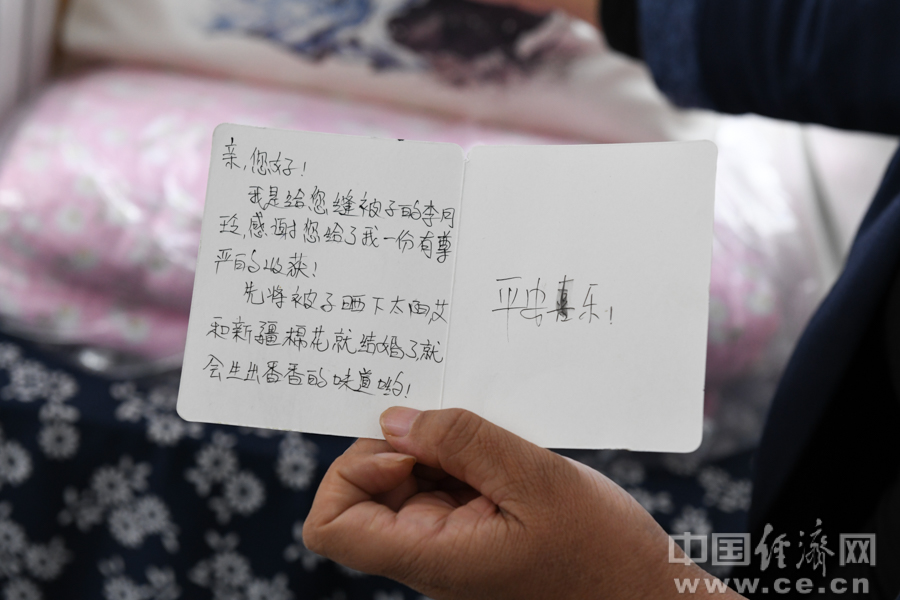 亲,您好!
我是给您缝被子的李月
玲,感谢您给了我一份有尊
严的收获!
先将被子晒下太阳艾
和新疆棉花就结婚了就
会生出香香的味道哟!
平安喜乐!
中国经济网
www.ce.cn